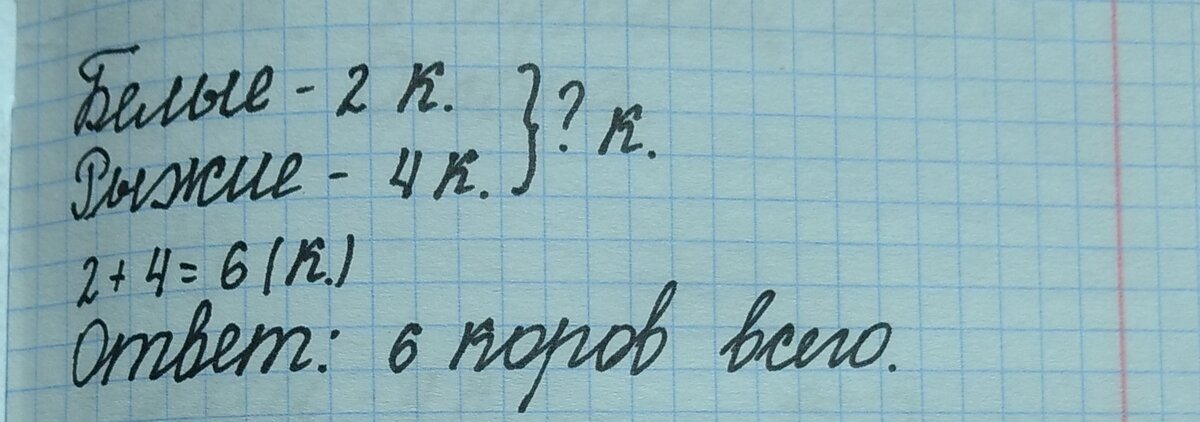 Белые - 2 к. } ? к.
Рыжие - 4 к.
2 + 4 = 6 (к.)
Ответ: 6 коров всего.